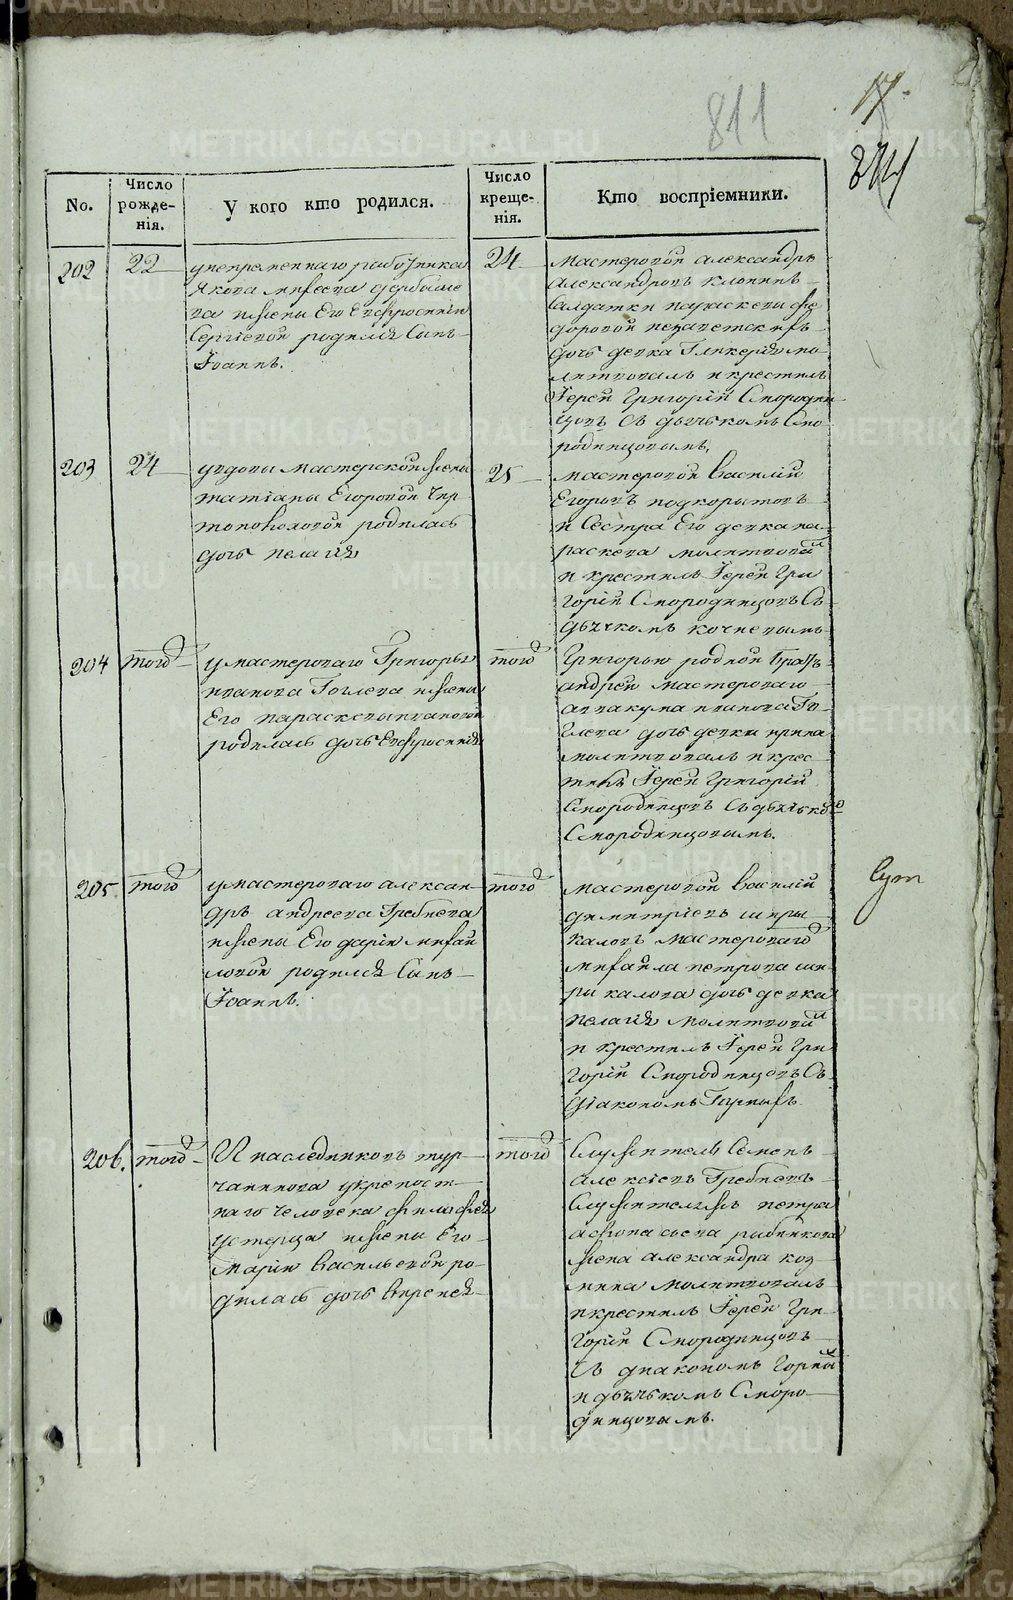 17.
811
814
No.
Число рожде-нія.
У кого кто родился.
Число креще-нія.
Кто воспріемники.
202
22
унепременнаго работника
Якова
жены Его Евфросиніи
Сергіевой родился Сынъ
Іоаннъ.
24
мастеровой александръ
александровъ клопинъ
Салдатки параскевы фе
доровой
дочь девка Гликерія мо
литвовалъ и крестилъ
Іерей Григорій Смородин
цовъ Съ дьячкомъ Смо
родинцовымъ.
203
24
увдовы мастерской жены
татіаны Егоровой Чер
родилась
дочь пелагія
25
мастеровой Василій
Егоровъ подкорытовъ
и Сестра Его девка па
раскева молитвовал
и крестилъ Іерей Гри
горій Смородинцовъ Съ
дьячкомъ кочневымъ
204
того
умастероваго Григорья
иванова Гоглева жены
Его параскевыивановой
родилась дочь Евфросинія
того
Григорью родной братъ
андрей мастероваго
аввакума иванова Го
глева дочь девки ирина
молитвовалъ и крес
тилъ Іерей Григорій
Смородинцовъ Съ дьячко
Смородинцовымъ.
205
того
умастероваго алексан
дръ андреева Гребнева
жены Его даріи михаи
ловой родился Сынъ
Іоаннъ.
того
мастеровой Василій
димитріевъ ширы
каловъ мастероваго
михаила петрова ши
ры калова дочь девка
пелагія молитвовал
и крестилъ Іерей Гри
горій Смородинцовъ Съ
діакономъ Горныхъ
206.
того
И наследниковъ тур
чанинова укрепост
наго человека филофея
устерца жены Его
Маріи васильевой ро
дилась дочь
того
Служитель Семенъ
алексіевъ Гребневъ
Служителя петра
афонасьева рыбникова
жена александра коз
мина молитвовалъ
икрестилъ Іерей Гри
горій Смородинцовъ
Съ диакономъ Горны
и дьячькомъ Сморо
динцовымъ.
METRIKI.GASO-URAL.RU